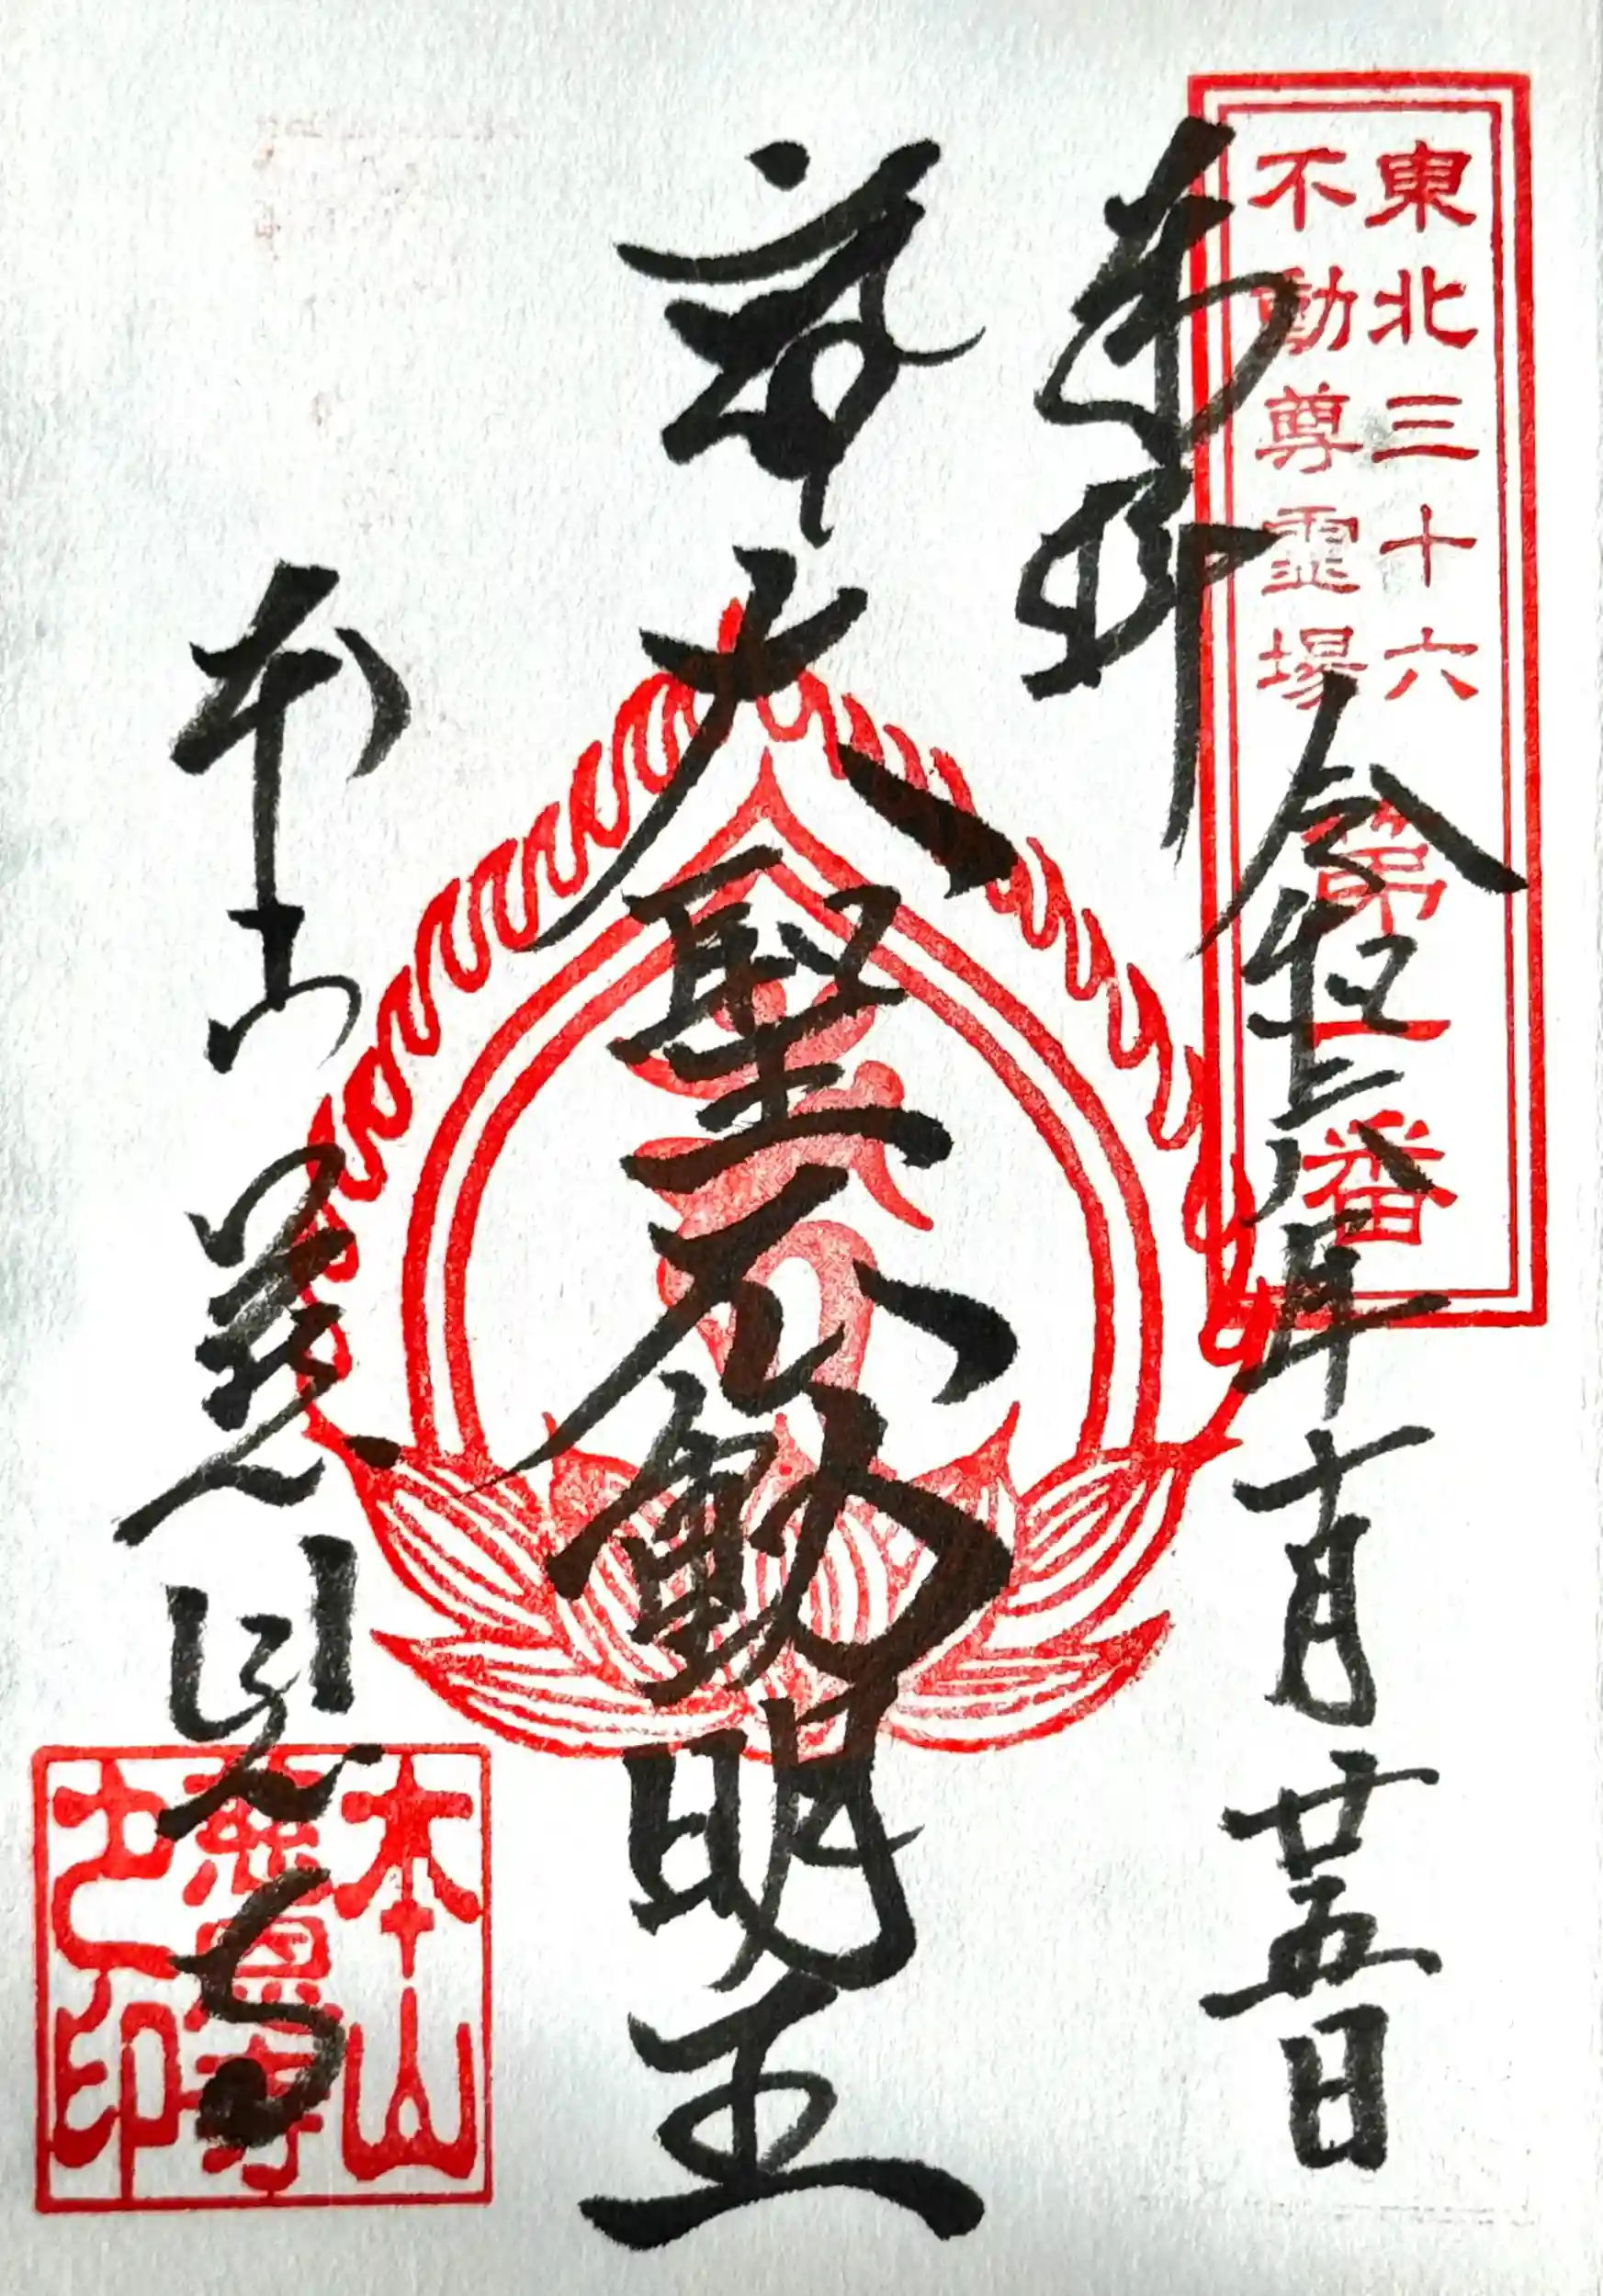 東北三十六
不動尊霊場
第一番
奉拝
令和六年十月廿五日
大聖不動明王
本山 慈恩寺
本山
慈恩寺
之印